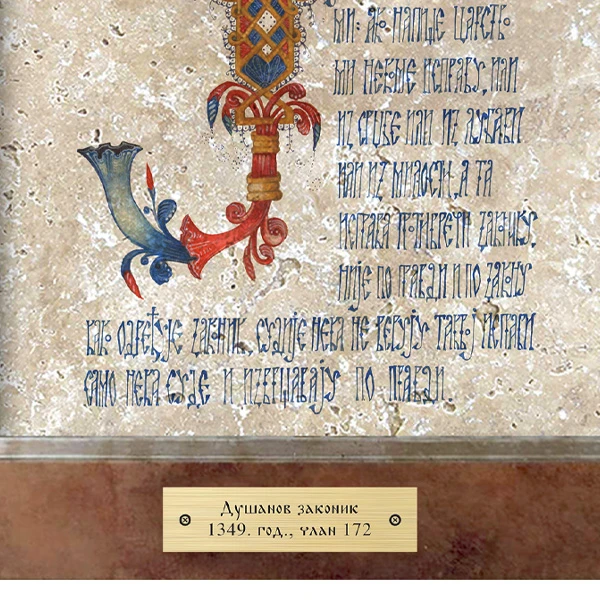 ми: ако напише царство
ми некоме исправу, или
из срџбе или из љубави
или из милости, а та
исправа противречи законику,
није по правди и по закону
како одређује законик, судије нека не верују таквој исправи.
само нека суде и извршавају по правди.
Душанов законик
1349. год., члан 172